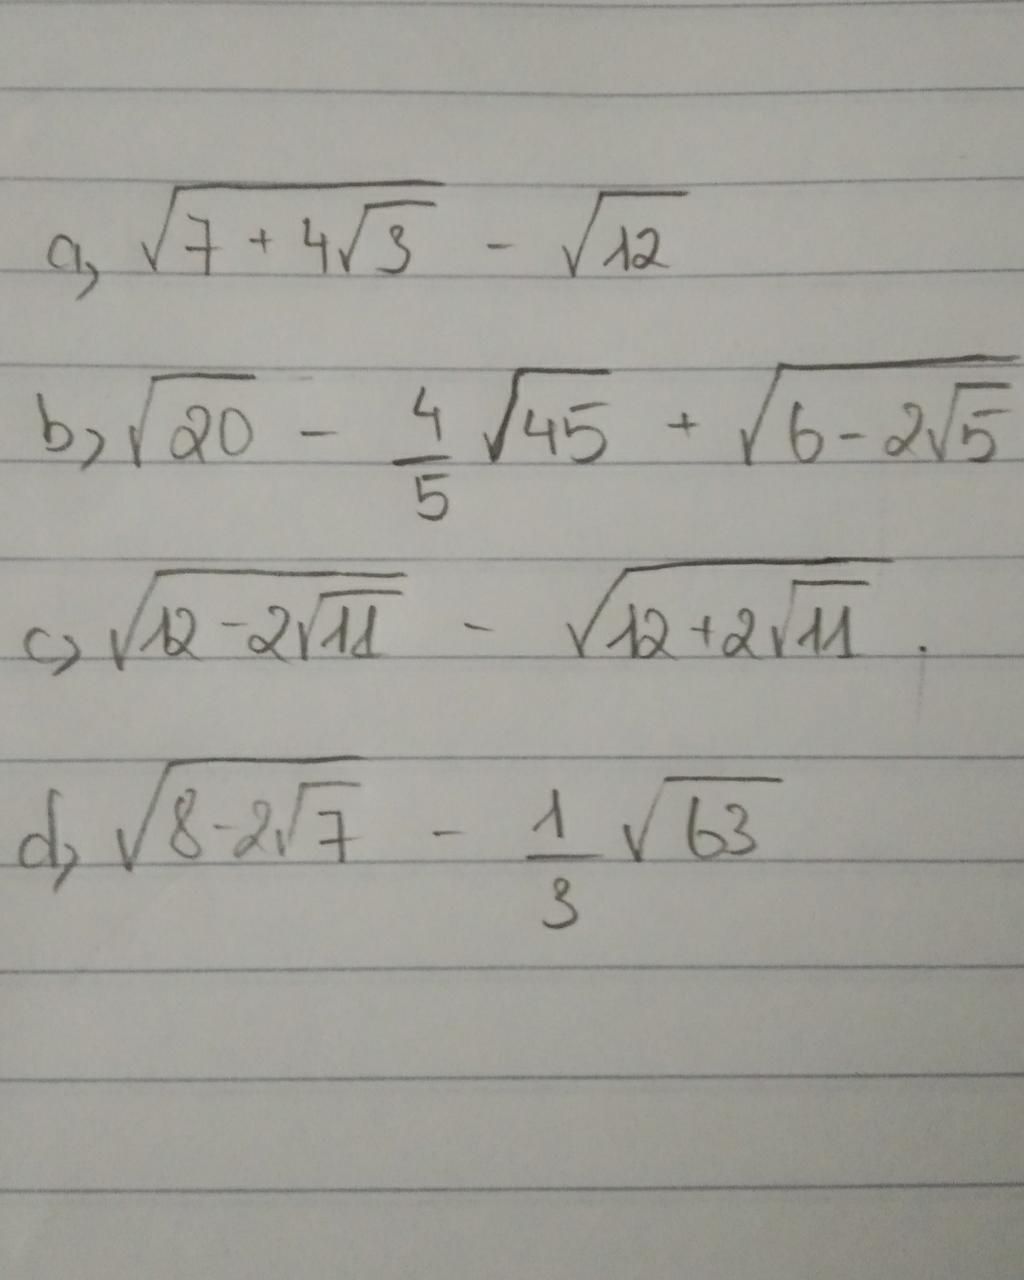 a, √(7 + 4√3) - √12
b, √20 - 4/5 √45 + √(6 - 2√5)
c, √(12 - 2√11) - √(12 + 2√11) .
d, √(8 - 2√7) - 1/3 √63